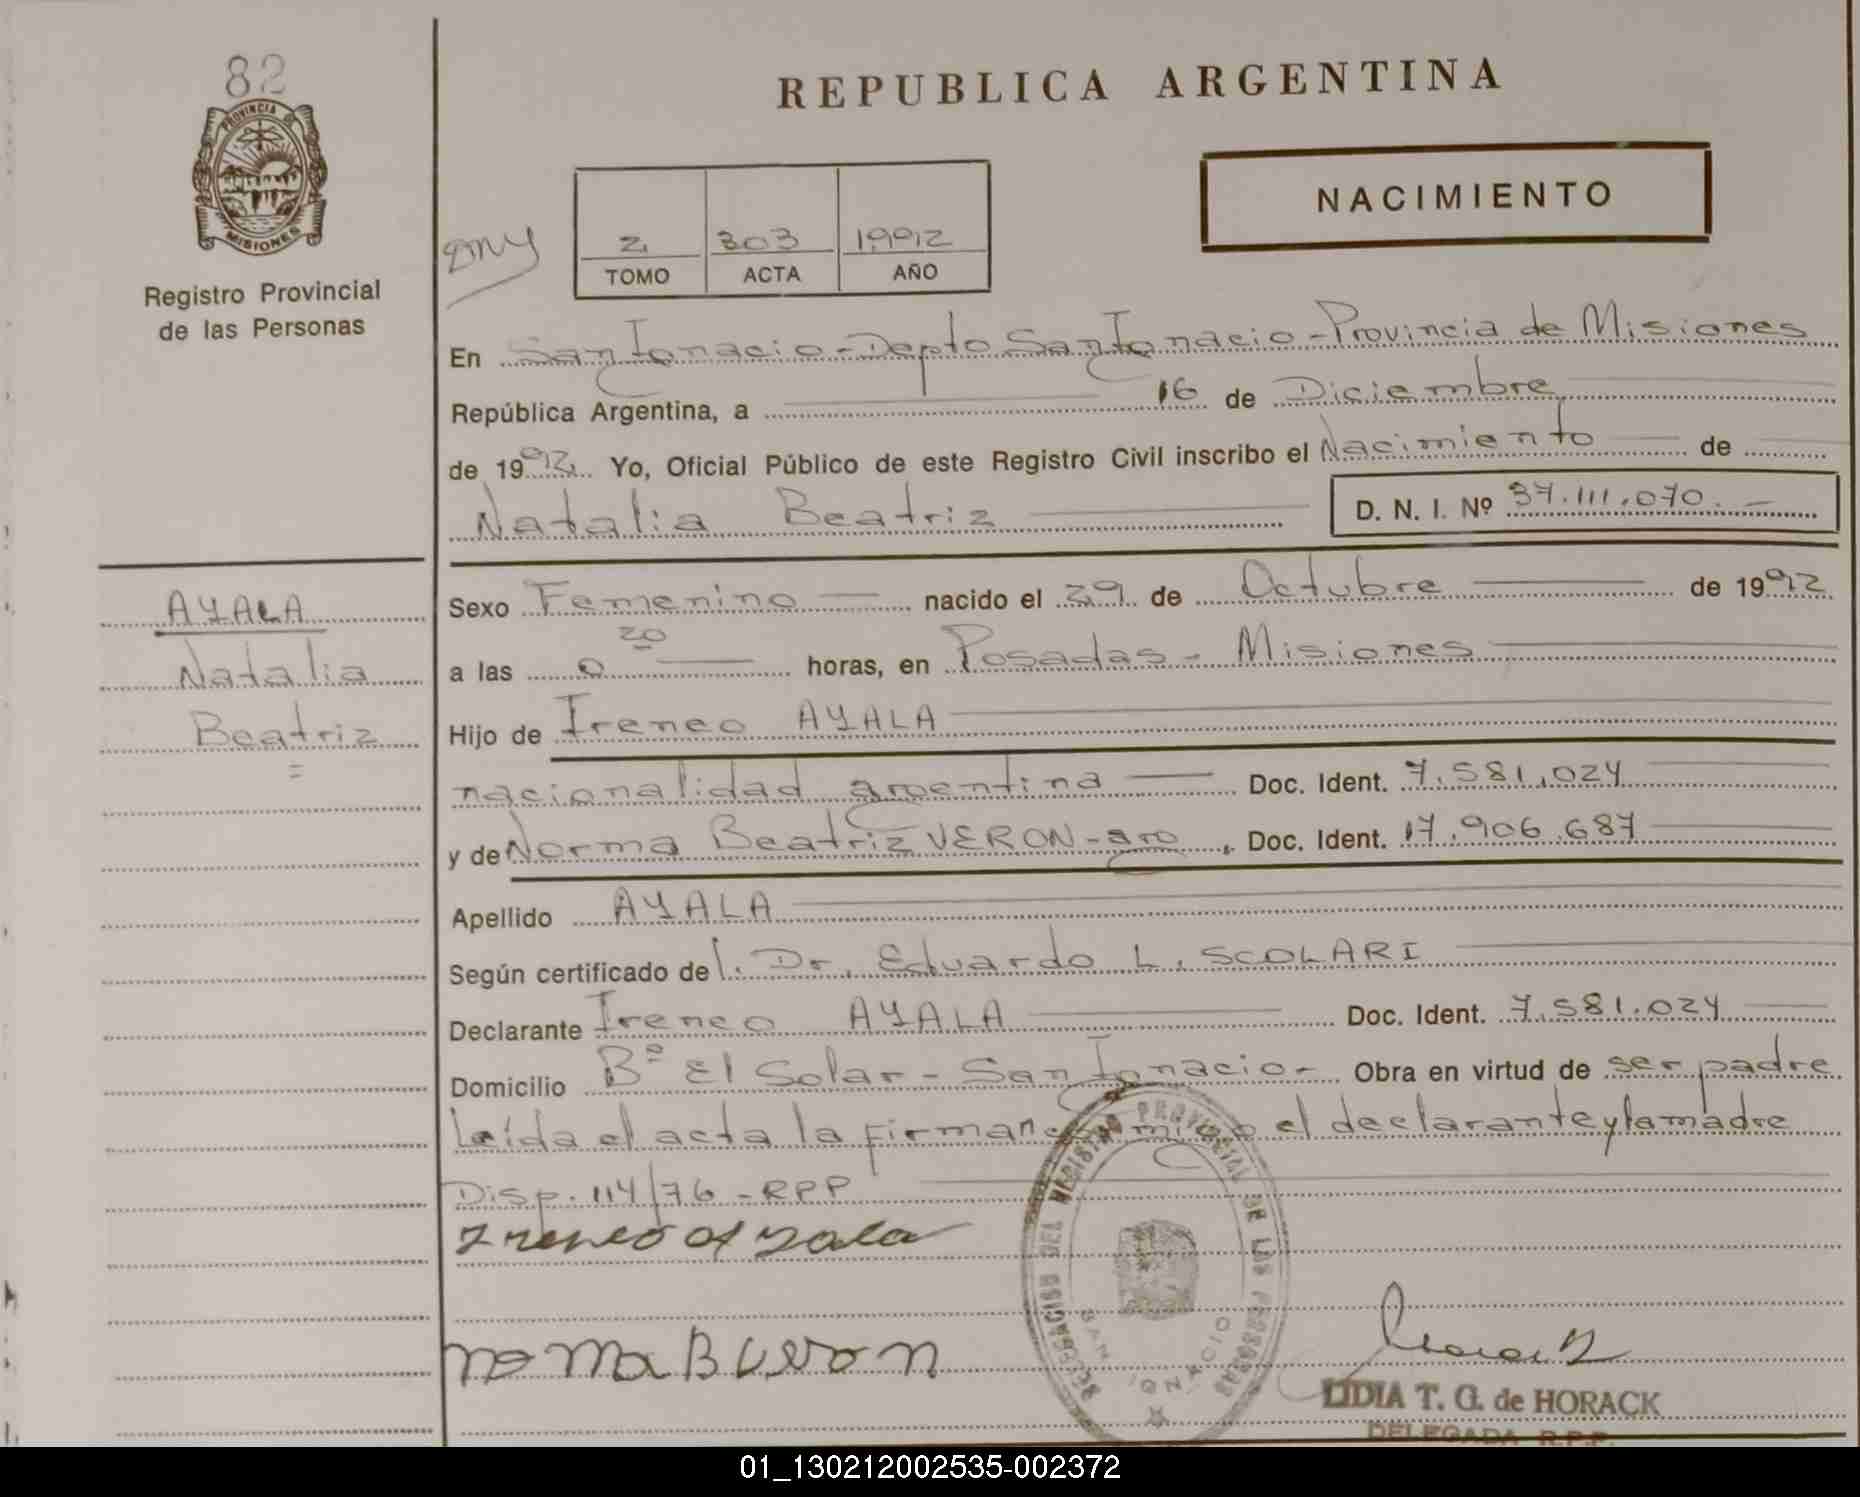 82
PROVINCIA DE
MISIONES
Registro Provincial
de las Personas
REPUBLICA ARGENTINA
NACIMIENTO
2 303 1992
TOMO ACTA AÑO
En San Ignacio - Depto San Ignacio - Provincia de Misiones
República Argentina, a 16 de Diciembre
de 1992 Yo, Oficial Público de este Registro Civil inscribo el Nacimiento de
Natalia Beatriz D. N. I. Nº 37.111.070.-
AYALA
Natalia
Beatriz
=
Sexo Femenino nacido el 29 de Octubre de 1992
a las 0 20 horas, en Posadas - Misiones
Hijo de Ireneo AYALA
nacionalidad argentina Doc. Ident. 7.581.024
y de Norma Beatriz VERON - arg., Doc. Ident. 17.906.687
Apellido AYALA
Según certificado del: Dr. Eduardo L. SCOLARI
Declarante Ireneo AYALA Doc. Ident. 7.581.024
Domicilio Bº El Solar - San Ignacio - Obra en virtud de ser padre
Leída el acta la firman conmigo el declarante y la madre
Disp. 114/76 - RPP
Ireneo Ayala
DELEGACION DEL REGISTRO PROVINCIAL DE LAS PERSONAS
SAN IGNACIO
Norma B Veron
LIDIA T. G. de HORACK
DELEGADA R.P.P.
01_130212002535-002372